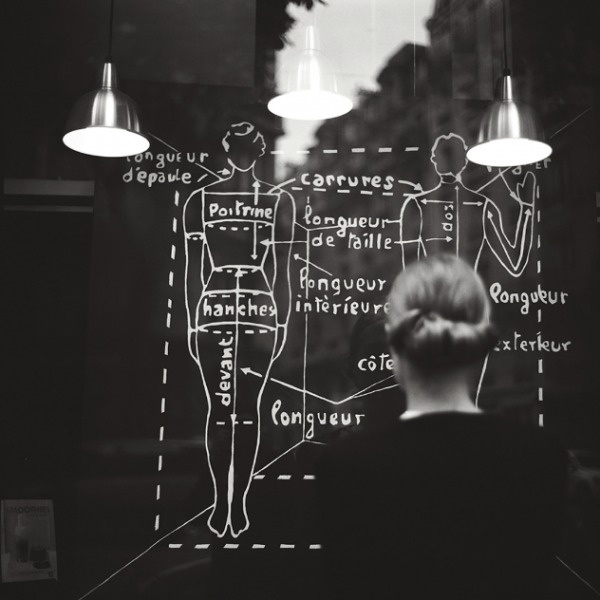 longueur
d'épaule
carrures
Poitrine
longueur
de taille
dos
longueur
intèrieure
hanches
longueur
exterieur
côte
devant
longueur